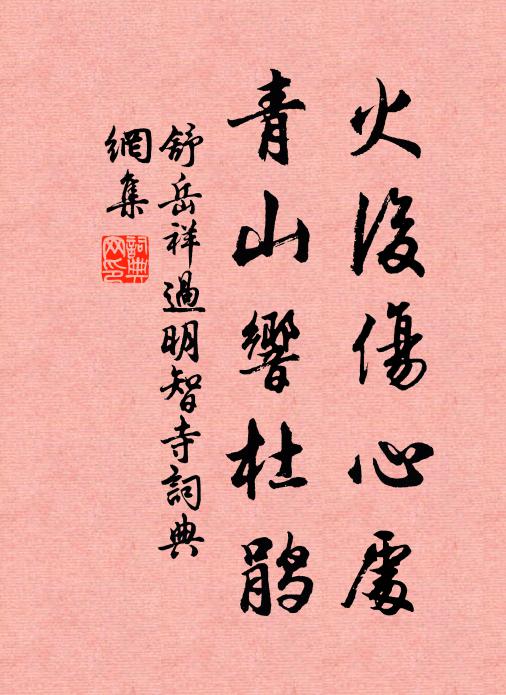 火後傷心處
青山響杜鵑
舒岳祥過明智寺詞典
網集
詞典網印